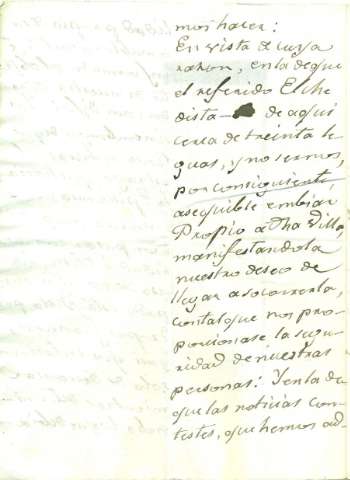 mos hacer:
En vista de cuya
razon, en la de que
el referido Elche
dista de aqui
cerca de treinta le
guas, y no sernos,
por consiguiente,
asequible embiar
Propio a dha Villa,
manifestandola
nuestro deseo de
llegar a socorrerla,
con tal que nos pro-
porcionase la segu-
ridad de nuestras
personas: Y en la de
que las noticias con-
testes, que hemos ad-